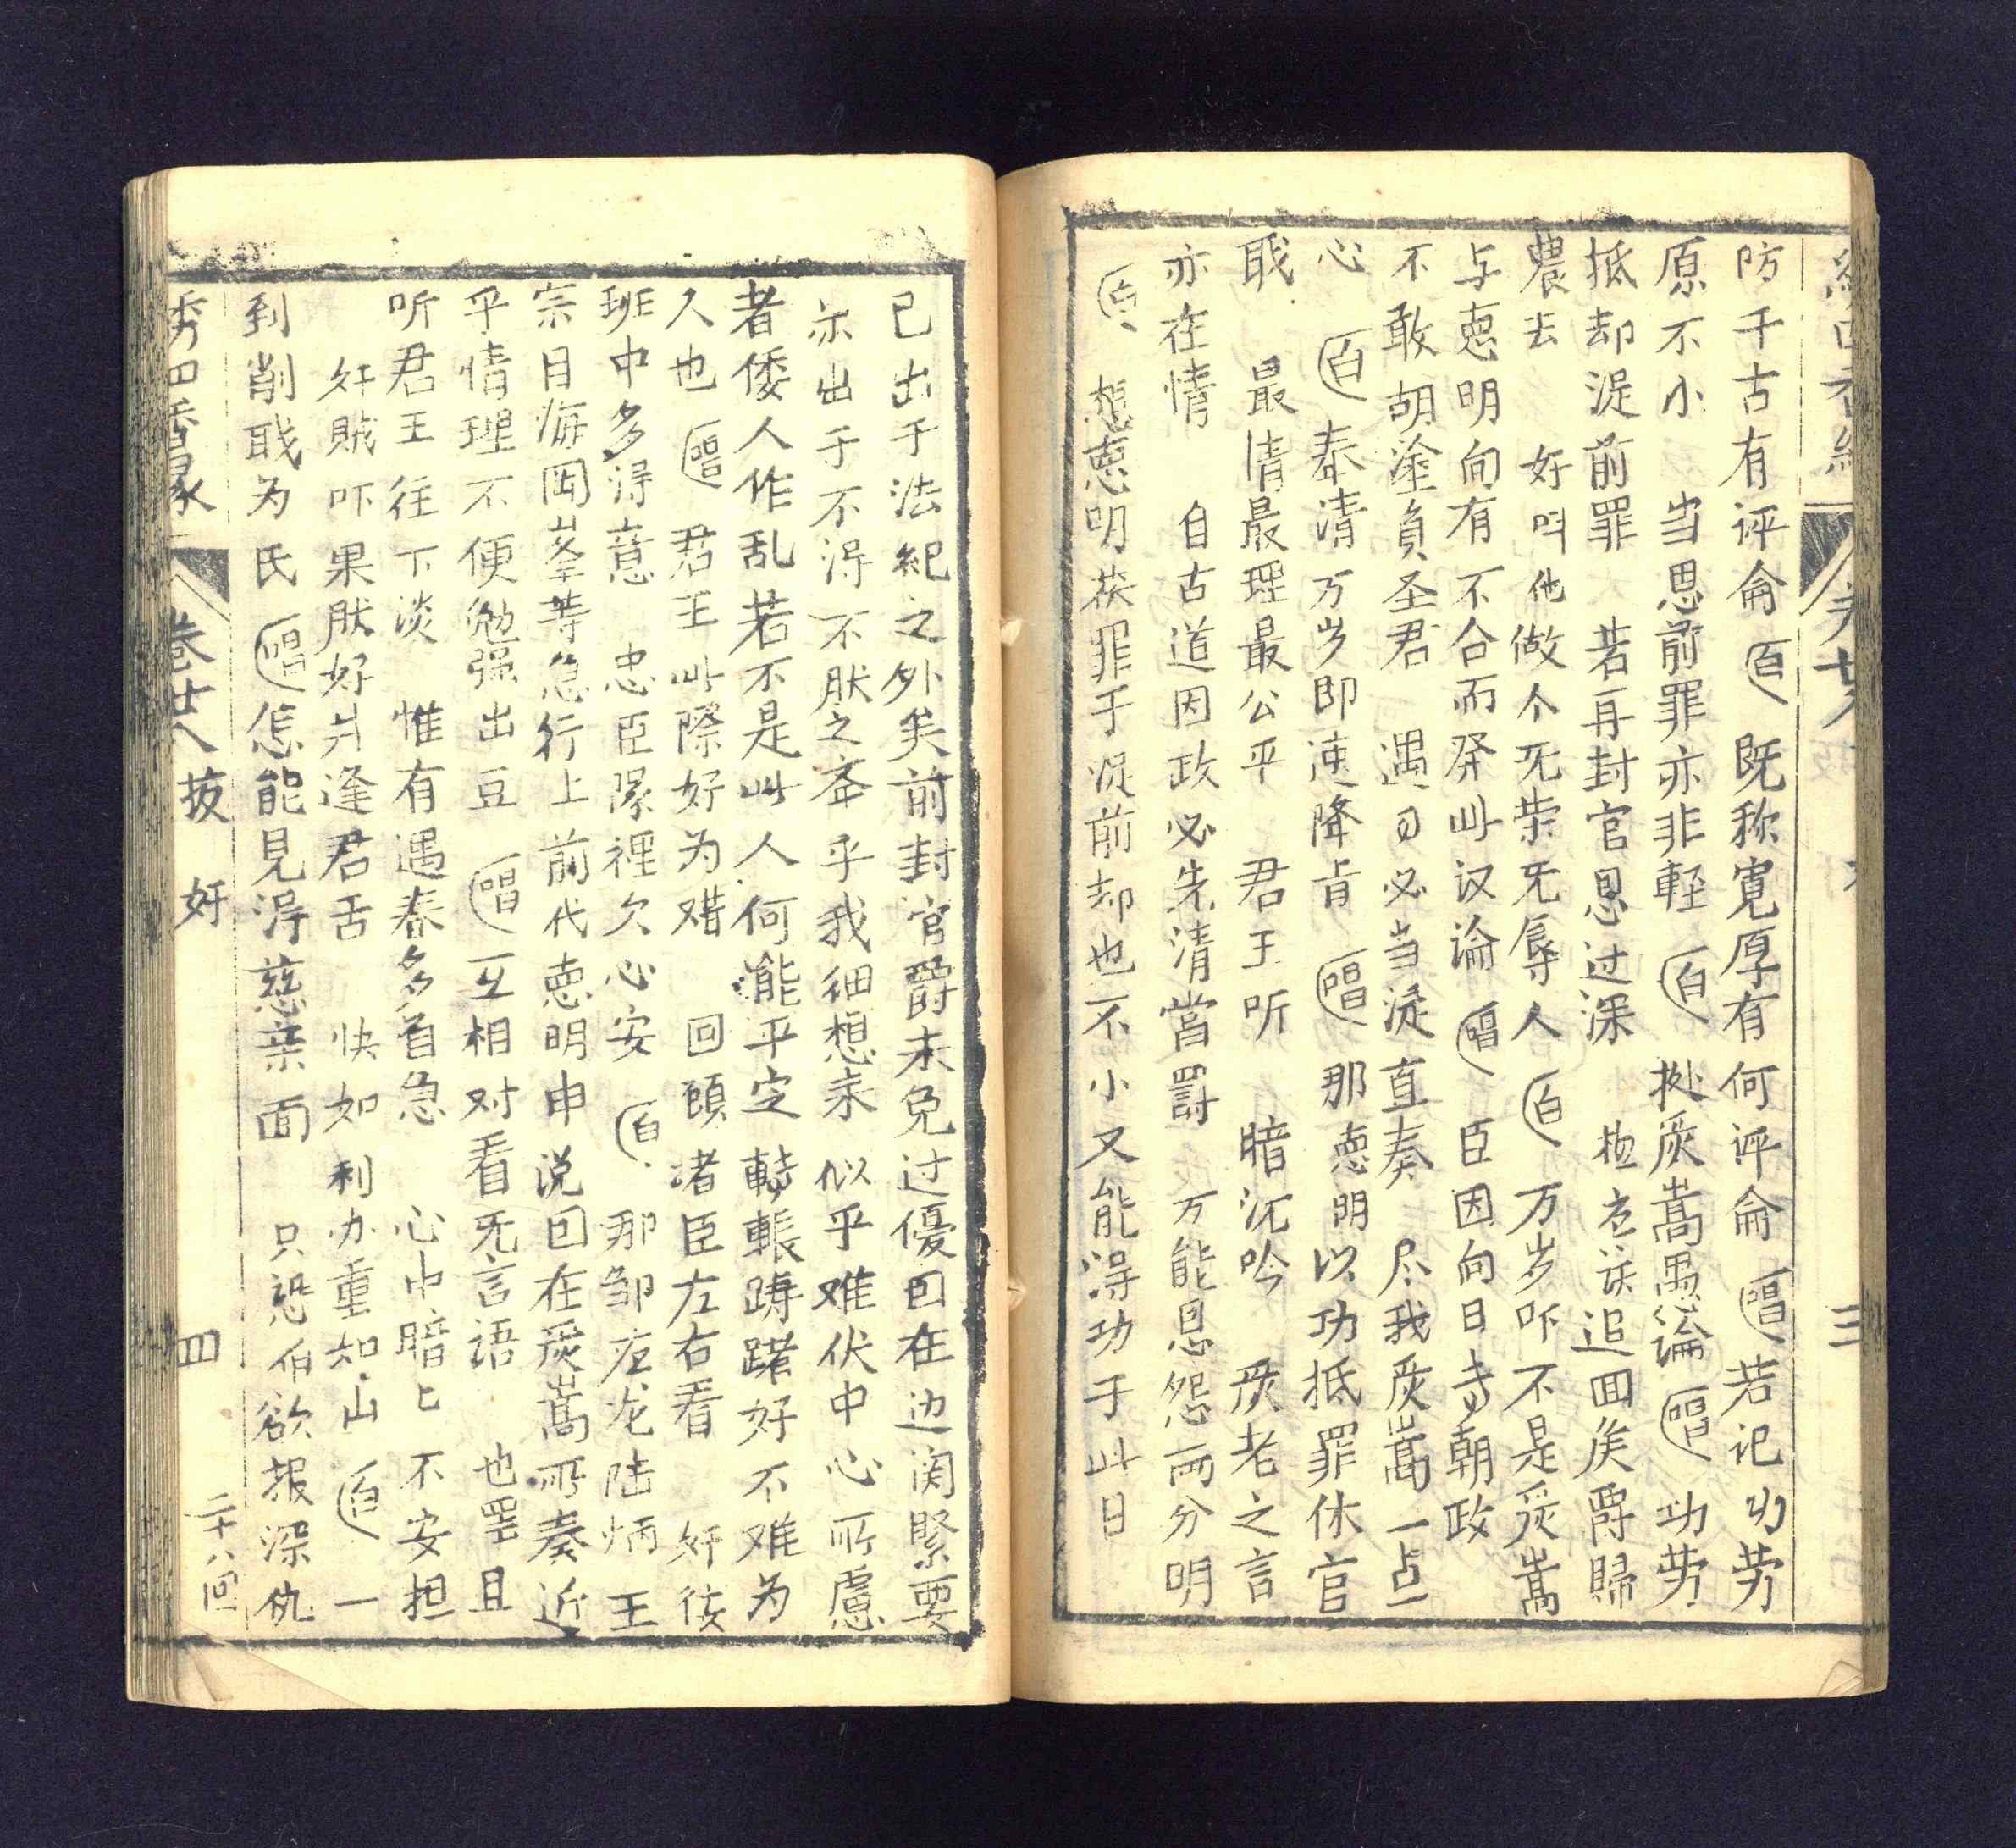 防千古有评侖 白 既称寛厚有何评侖 唱 若记功劳
原不小 当思前罪亦非輕 白 嵩愚論 唱 功劳
抵却浞前罪 若再封官恩过深 追回矦爵歸
農去 好叫他做个旡荣旡辱人 白 万岁吓不是嵩
与恴明向有不合而發此议論 唱 臣因向日朝政
不敢胡塗負圣君 遇必当浞直奏 尽我嵩一点
心 白 奉請万岁即速降肯 唱 那恴明以功抵罪休官
戝 最情最理最公平 君王听 暗沉吟 老之言
亦在情 自古道因政必先清當罰 万能恩怨両分明
白 想恴明获罪于浞前却也不小又能得功于此日
已出于法紀之外矣前封官爵未免过優囙在边関緊要
亦出于不淂不肰之 乎我細想来 似乎难伏中心所慮
者倭人作乱若不是此人何能平定 躊躇好不难为
人也 唱 君王此際好为难 回頭渚臣左右看 奸佞
班中多淂意 忠臣隊裡欠心安 白 那邹应龙陆炳王
宗目海囯峯等急行上前代恴明申説囙在嵩所奏近
乎情理不便勉强出豆 唱 互相对看旡言語 也罢且
听君王往下淡 惟有遇春多着急 心中暗匕不安担
奸賊吓果肰好 逢君舌 快如利办重如山 白 一
到削戝为氏 唱 怎能見淂慈亲面 只恐伯欲报深仇
卷廿八 拔奸 四 二十八回
三